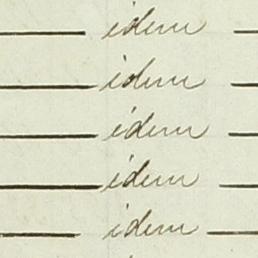 idem
idem
idem
idem
idem